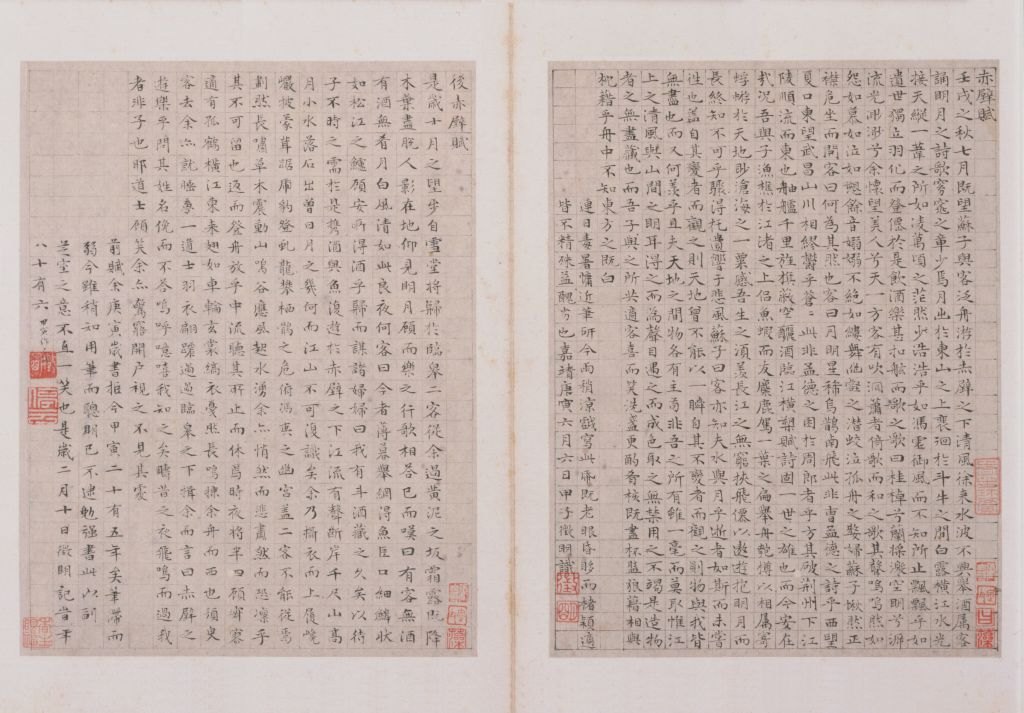 赤壁賦
壬戌之秋七月既望蘇子與客泛舟游於赤壁之下清風徐來水波不興舉酒屬客
誦明月之詩歌窈窕之章少焉月出於東山之上裵洄於斗牛之間白露橫江水光
接天縱一葦之所如凌萬頃之茫然少浩浩乎如馮虛御風而不知所止飄飄乎如
遺世獨立羽化而登僊於是飲酒樂甚扣舷而歌之歌曰桂棹兮蘭槳擊空明兮泝
流光渺渺兮余懷望美人兮天一方客有吹洞簫者倚歌而和之歌其聲嗚嗚然如
怨如慕如泣如愬餘音嫋嫋不絕如縷舞幽壑之潛蛟泣孤舟之嫠婦蘇子愀然正
襟危坐而問客曰何為其然也客曰月明星稀烏鵲南飛此非曹孟德之詩乎西望
夏口東望武昌山川相繆鬱乎蒼〻此非孟德之困於周郎者乎方其破荊州下江
陵順流而東也舳艫千里旌旗蔽空釃酒臨江橫槊賦詩固一世之雄也而今安在
哉況吾與子漁樵於江渚之上侶魚蝦而友麋鹿駕一葉之扁舟匏樽以相屬寄
蜉蝣於天地眇滄海之一粟感吾生之須羨長江之無窮挾飛僊以遨遊抱明月而
長終知不可乎驟得托遺響于悲風蘇子曰客亦知夫水與月乎逝者如斯而未嘗
往也蓋自其變者而觀之則天地曾不能以一瞬自其不變者而觀之則物與我皆
無盡也而又何羨乎且夫天地之間物各有主苟非吾之所有雖一毫而莫取惟江
上之清風與山間之明耳得之而為聲目遇之而成色取之無禁用之不竭是造物
者之無盡藏也而吾子與之所共適客喜而笑洗盞更酌肴核既盡杯盤狼藉相與
枕藉乎舟中不知東方之既白
連日毒暑慵近筆研今雨稍涼戲寫此紙既老眼昏眵而楮穎適
皆不精殊益醜劣也嘉靖庚寅六月六日甲子徵明識
後赤壁賦
是歲十月之望步自雪堂將歸於臨皋二客從余過黃泥之坂霜露既降
木葉盡脫人影在地仰見明月顧而樂之行歌相答已而嘆曰有客無酒
有酒無肴月白風清如此良夜何客曰今者薄暮舉網得魚巨口細鱗狀
如松江之鱸顧安所得酒乎歸而謀諸婦婦曰我有斗酒藏之久矣以待
子不時之需於是攜酒與魚復遊於赤壁之下江流有聲斷岸千尺山高
月小水落石出曾日月之幾何而江山不可復識矣余乃攝衣而上履巉
巖披蒙茸踞虎豹登虬龍攀栖鶻之危俯馮夷之幽宮蓋二客不能從焉
劃然長嘯草木震動山鳴谷應風起水湧余亦悄然而悲肅然而恐凜乎
其不可留也返而登舟放乎中流聽其所止而休焉時夜將半四顧寂寥
適有孤鶴橫江東來翅如車輪玄裳縞衣戞然長鳴掠余舟而西也須臾
客去余亦就睡夢一道士羽衣翩躚過臨皋之下揖余而言曰赤壁之
遊樂乎問其姓名俛而不答嗚呼噫嘻我知之矣疇昔之夜飛鳴而過我
者非子也耶道士顧笑余亦驚寤開戶視之不見其處
前賦余庚寅歲書拒今甲寅二十有五年矣筆滯而
弱今雖稍知用筆而聰明已不逮勉強書此以副
芝室之意不直一笑也是歲二月十日徵明記當年
八十有六